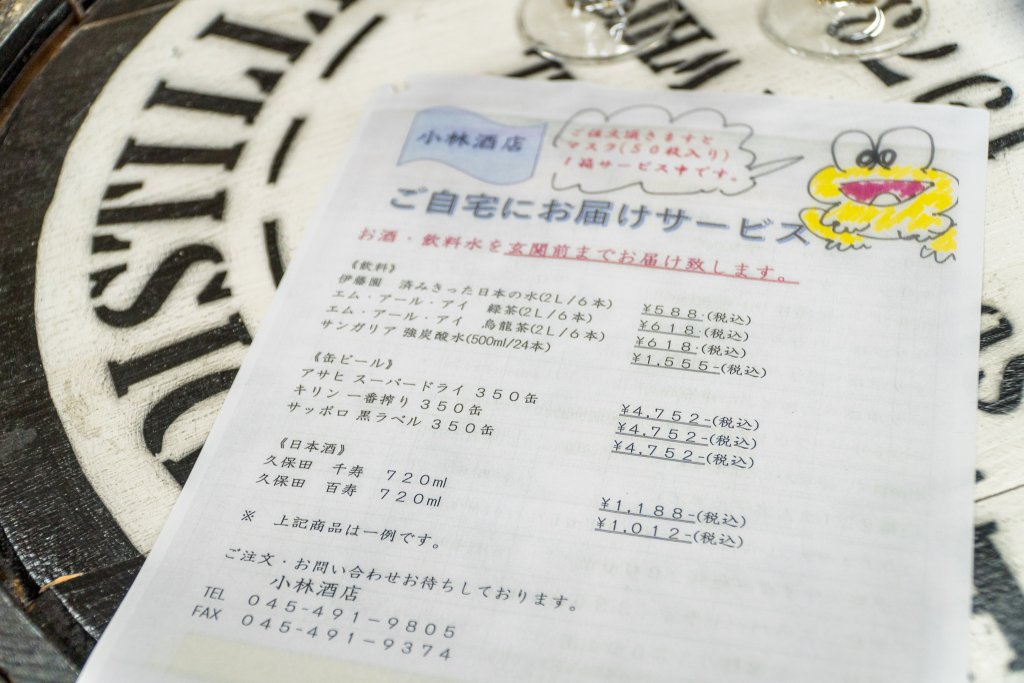 DISTILL
小林酒店
ご注文頂きますと
マスク(50枚入り)
1箱サービス中です。
ご自宅にお届けサービス
お酒・飲料水を玄関前までお届け致します。
《飲料》
伊藤園 済みきった日本の水(2L/6本) ¥588-(税込)
エム・アール・アイ 緑茶(2L/6本) ¥618-(税込)
エム・アール・アイ 烏龍茶(2L/6本) ¥618-(税込)
サンガリア 強炭酸水(500ml/24本) ¥1,555-(税込)
《缶ビール》
アサヒ スーパードライ 350缶 ¥4,752-(税込)
キリン 一番搾り 350缶 ¥4,752-(税込)
サッポロ 黒ラベル 350缶 ¥4,752-(税込)
《日本酒》
久保田 千寿 720ml ¥1,188-(税込)
久保田 百寿 720ml ¥1,012-(税込)
※ 上記商品は一例です。
ご注文・お問い合わせお待ちしております。
小林酒店
TEL 045-491-9805
FAX 045-491-9374